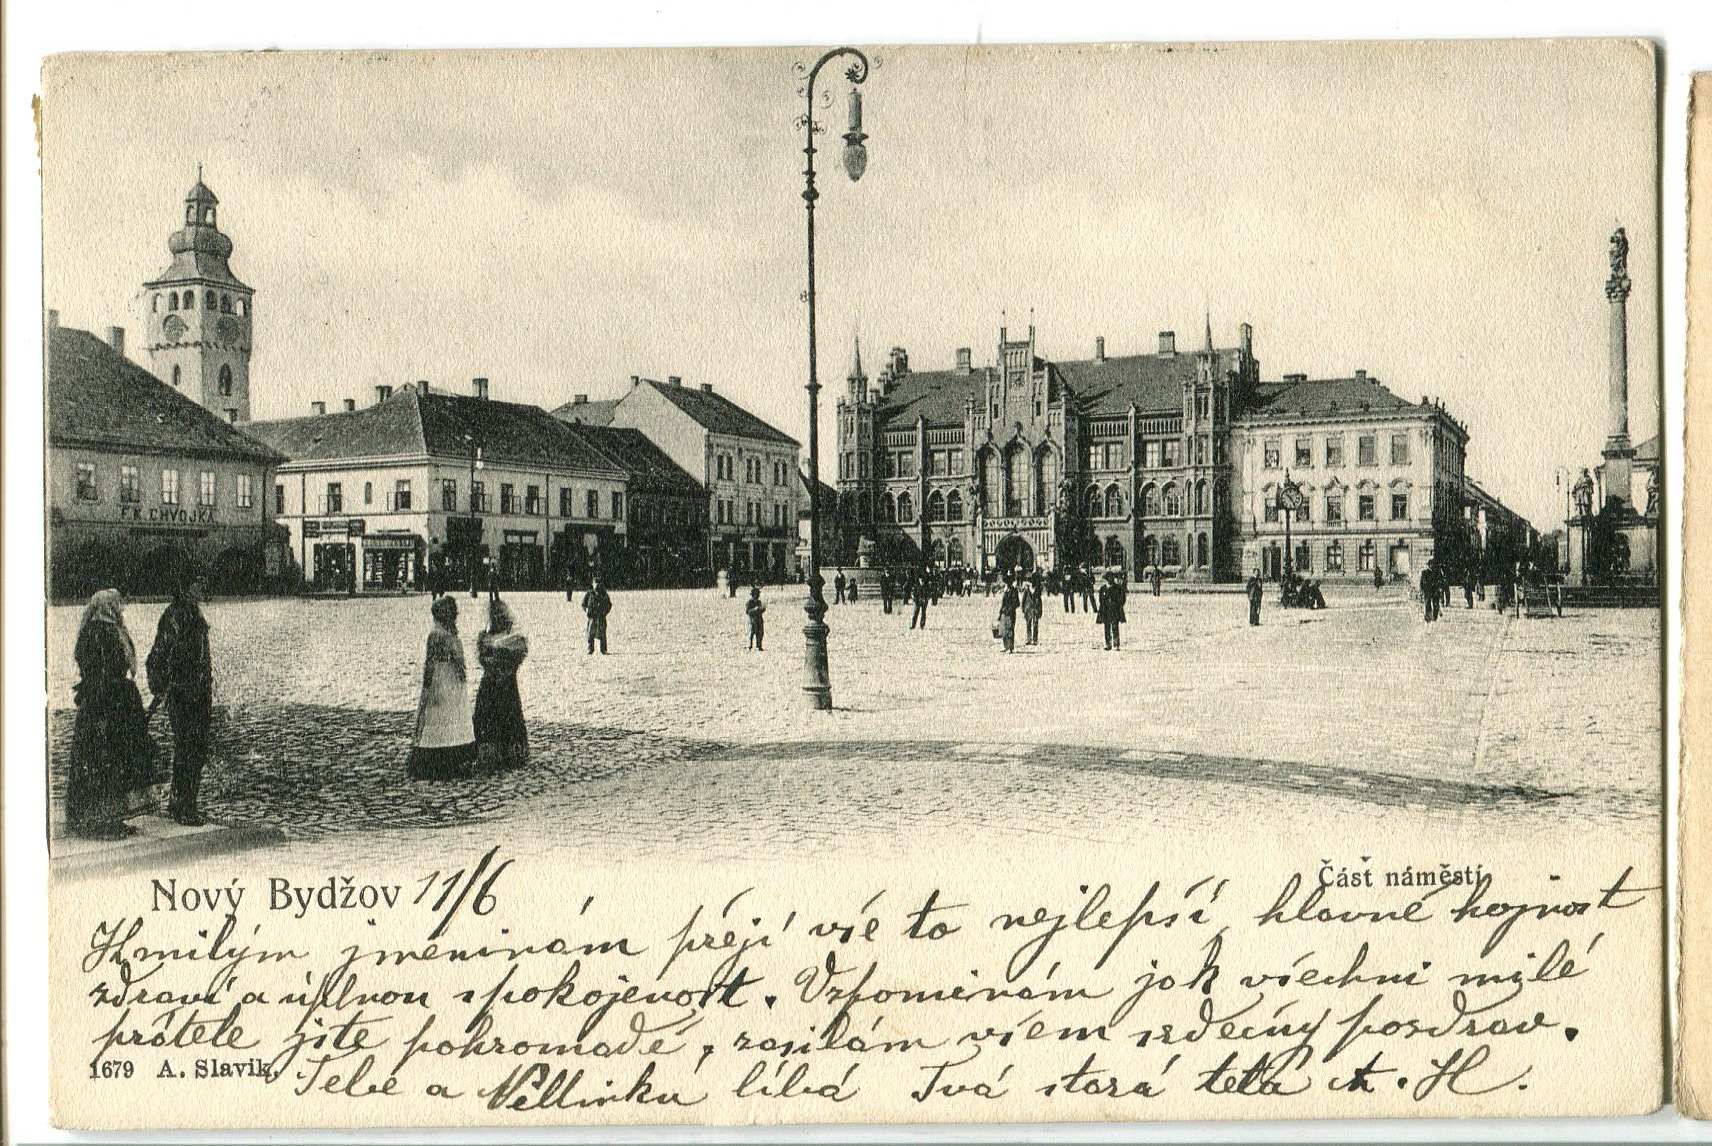 FR. CHVOJKA
Nový Bydžov 11/6
Část náměstí
K milým jmeninám přeji vše to nejlepší hlavně hojnost
zdraví a úplnou spokojenost. Vzpomínám jak všichni milé
přátele jste pohromadě, zasílám všem srdečný pozdrav.
1679 A. Slavík.
Tebe a Nellinku líbá Tvá stará teta A. H.